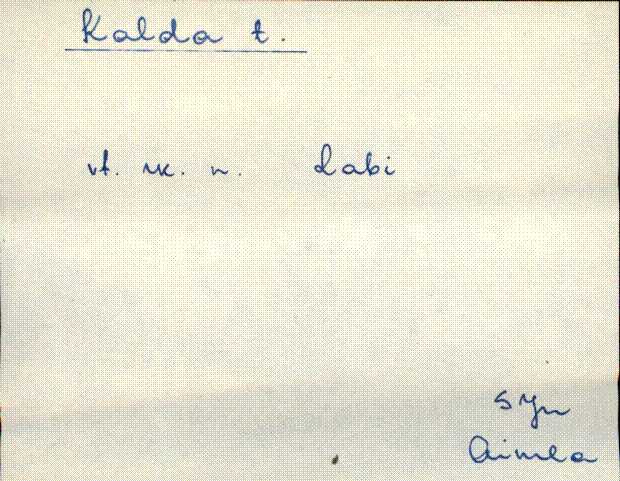 Kalda t.
vt. rk. n. Labi
syn
Aimla